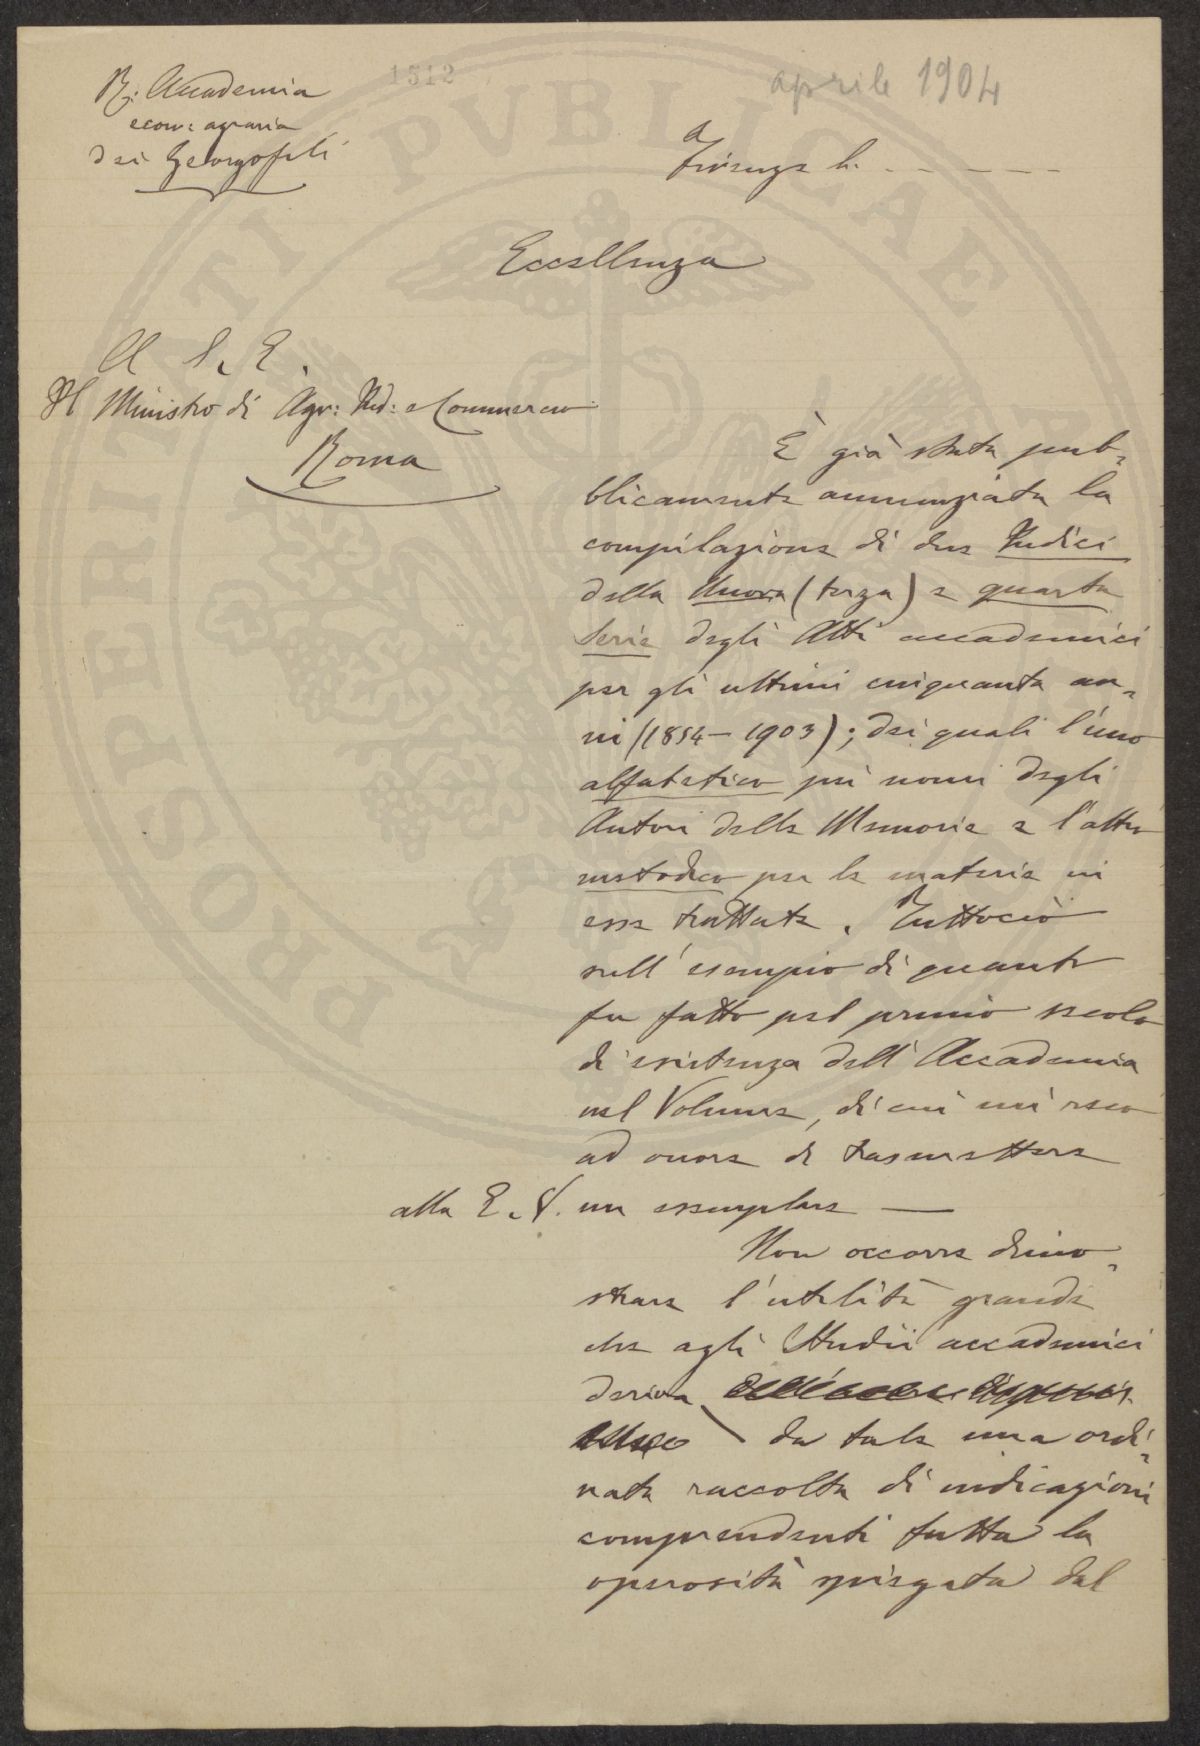 1512
aprile 1904
R. Accademia
econ: agraria
dei Georgofili
Firenze li
Eccellenza
A S. E.
Il Ministro di Agr: Ind: e Commercio
Roma
È già stata pub-
blicamente annunziata la
compilazione di due Indici
della Nuova (terza) e quarta
Serie degli Atti accademici
per gli ultimi cinquanta an-
ni (1854 - 1903); dei quali l'uno
alfabetico pei nomi degli
Autori delle Memorie e l'altro
metodico per le materie in
esse trattate. Tuttociò
sull'esempio di quanto
fu fatto pel primo secolo
di esistenza dell'Accademia
nel Volume, di cui mi reco
ad onore di trasmettere
alla E. V. un esemplare —
Non occorre dimo-
strare l'utilità grande
che agli Studii accademici
deriva
da tale una ordi-
nata raccolta di indicazioni
comprendenti tutta la
operosità spiegata dal
PROSPERITATI PUBLICAE